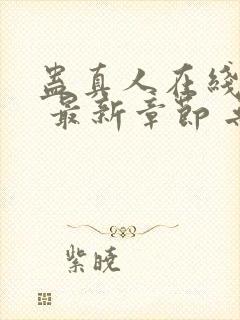 蛊真人在线
最新章节
紫晓